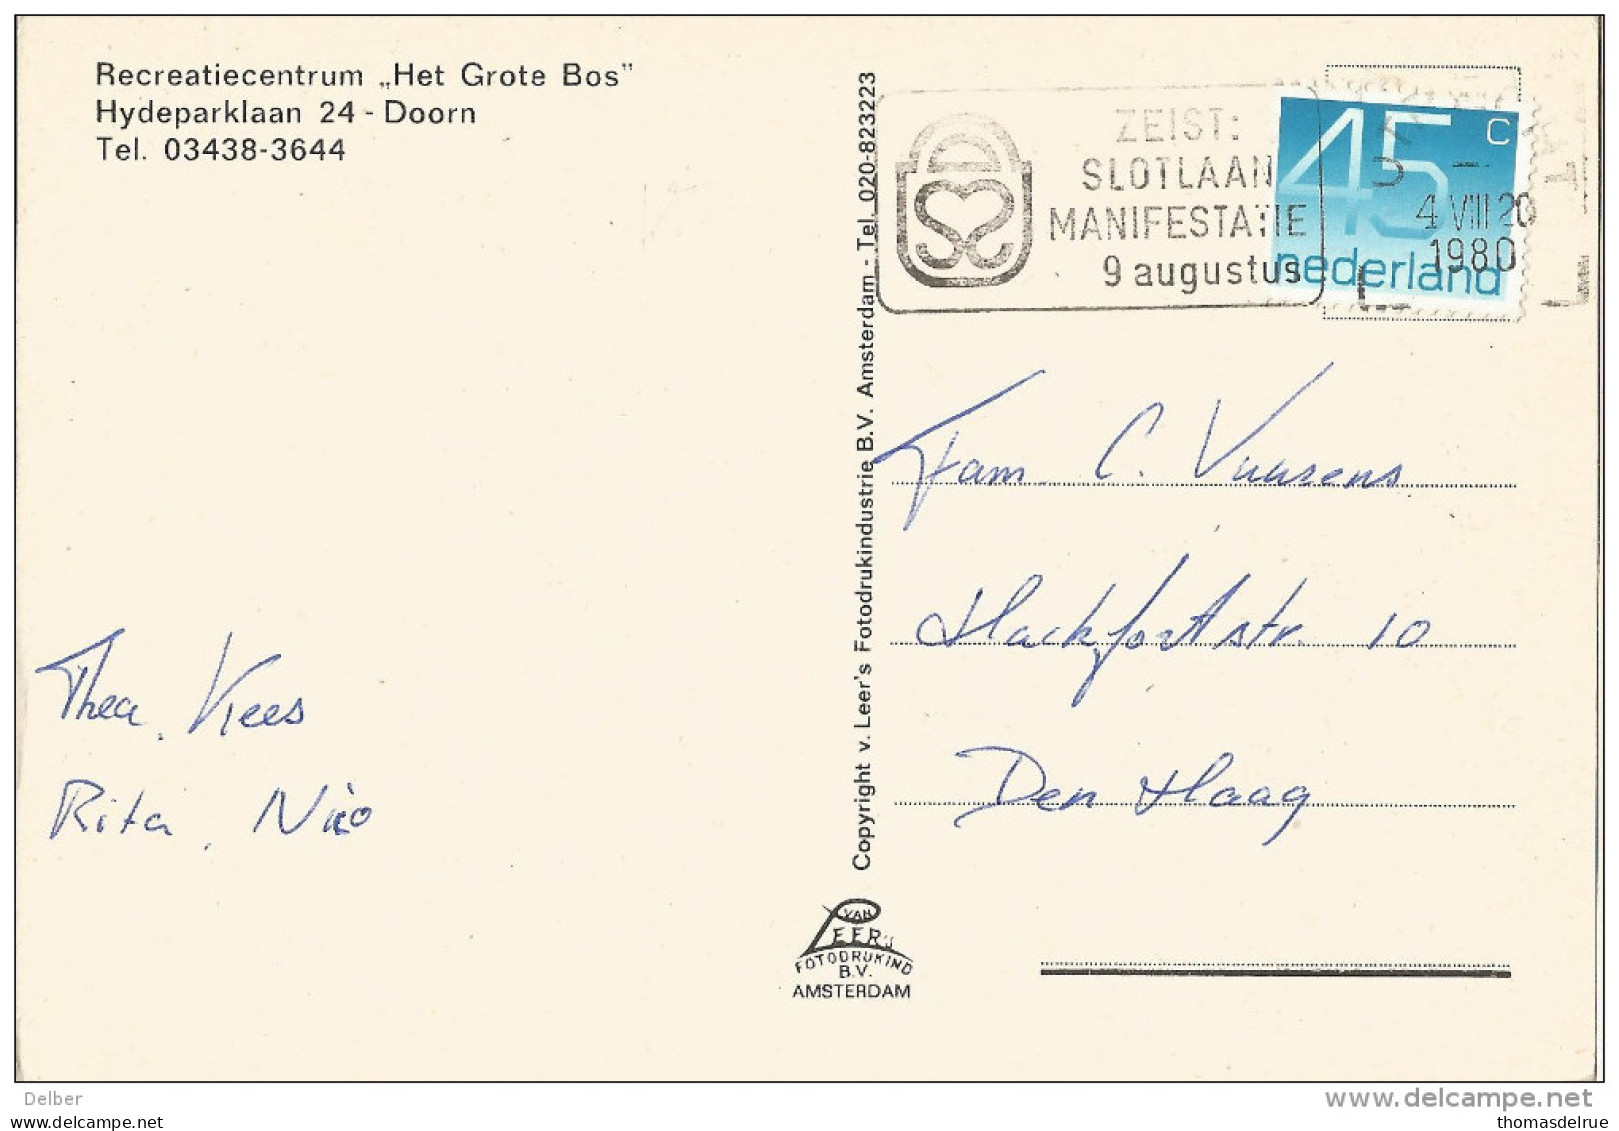 Recreatiecentrum „Het Grote Bos"
Hydeparklaan 24 - Doorn
Tel. 03438-3644
Copyright v. Leer's Fotodrukindustrie B.V. Amsterdam - Tel. 020-823223
ZEIST:
SLOTLAAN
MANIFESTATIE
9 augustus
45 C
nederland
4 VIII 20
1980
Fam C.
Hackfortstr. 10
Den Haag
Thea, Kees
Rita, Nico
VAN
LEER'S
FOTODRUKIND
B.V.
AMSTERDAM
Delber
www.delcampe.net
thomasdelrue